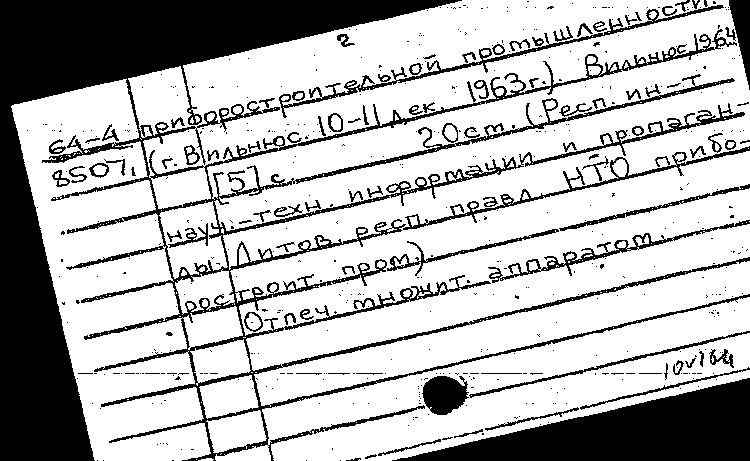 2
приборостроительной промышленности.
64-4
8507,
(г. Вильнюс. 10-11 дек. 1963г.). Вильнюс, 1964
[5] с. 20 см. (Респ. ин-т
науч.-техн. информации и пропаган-
ды. Литов. респ. правл. НТО прибо-
ростроит. пром.)
Отпеч. множит. аппаратом.
10 V 164